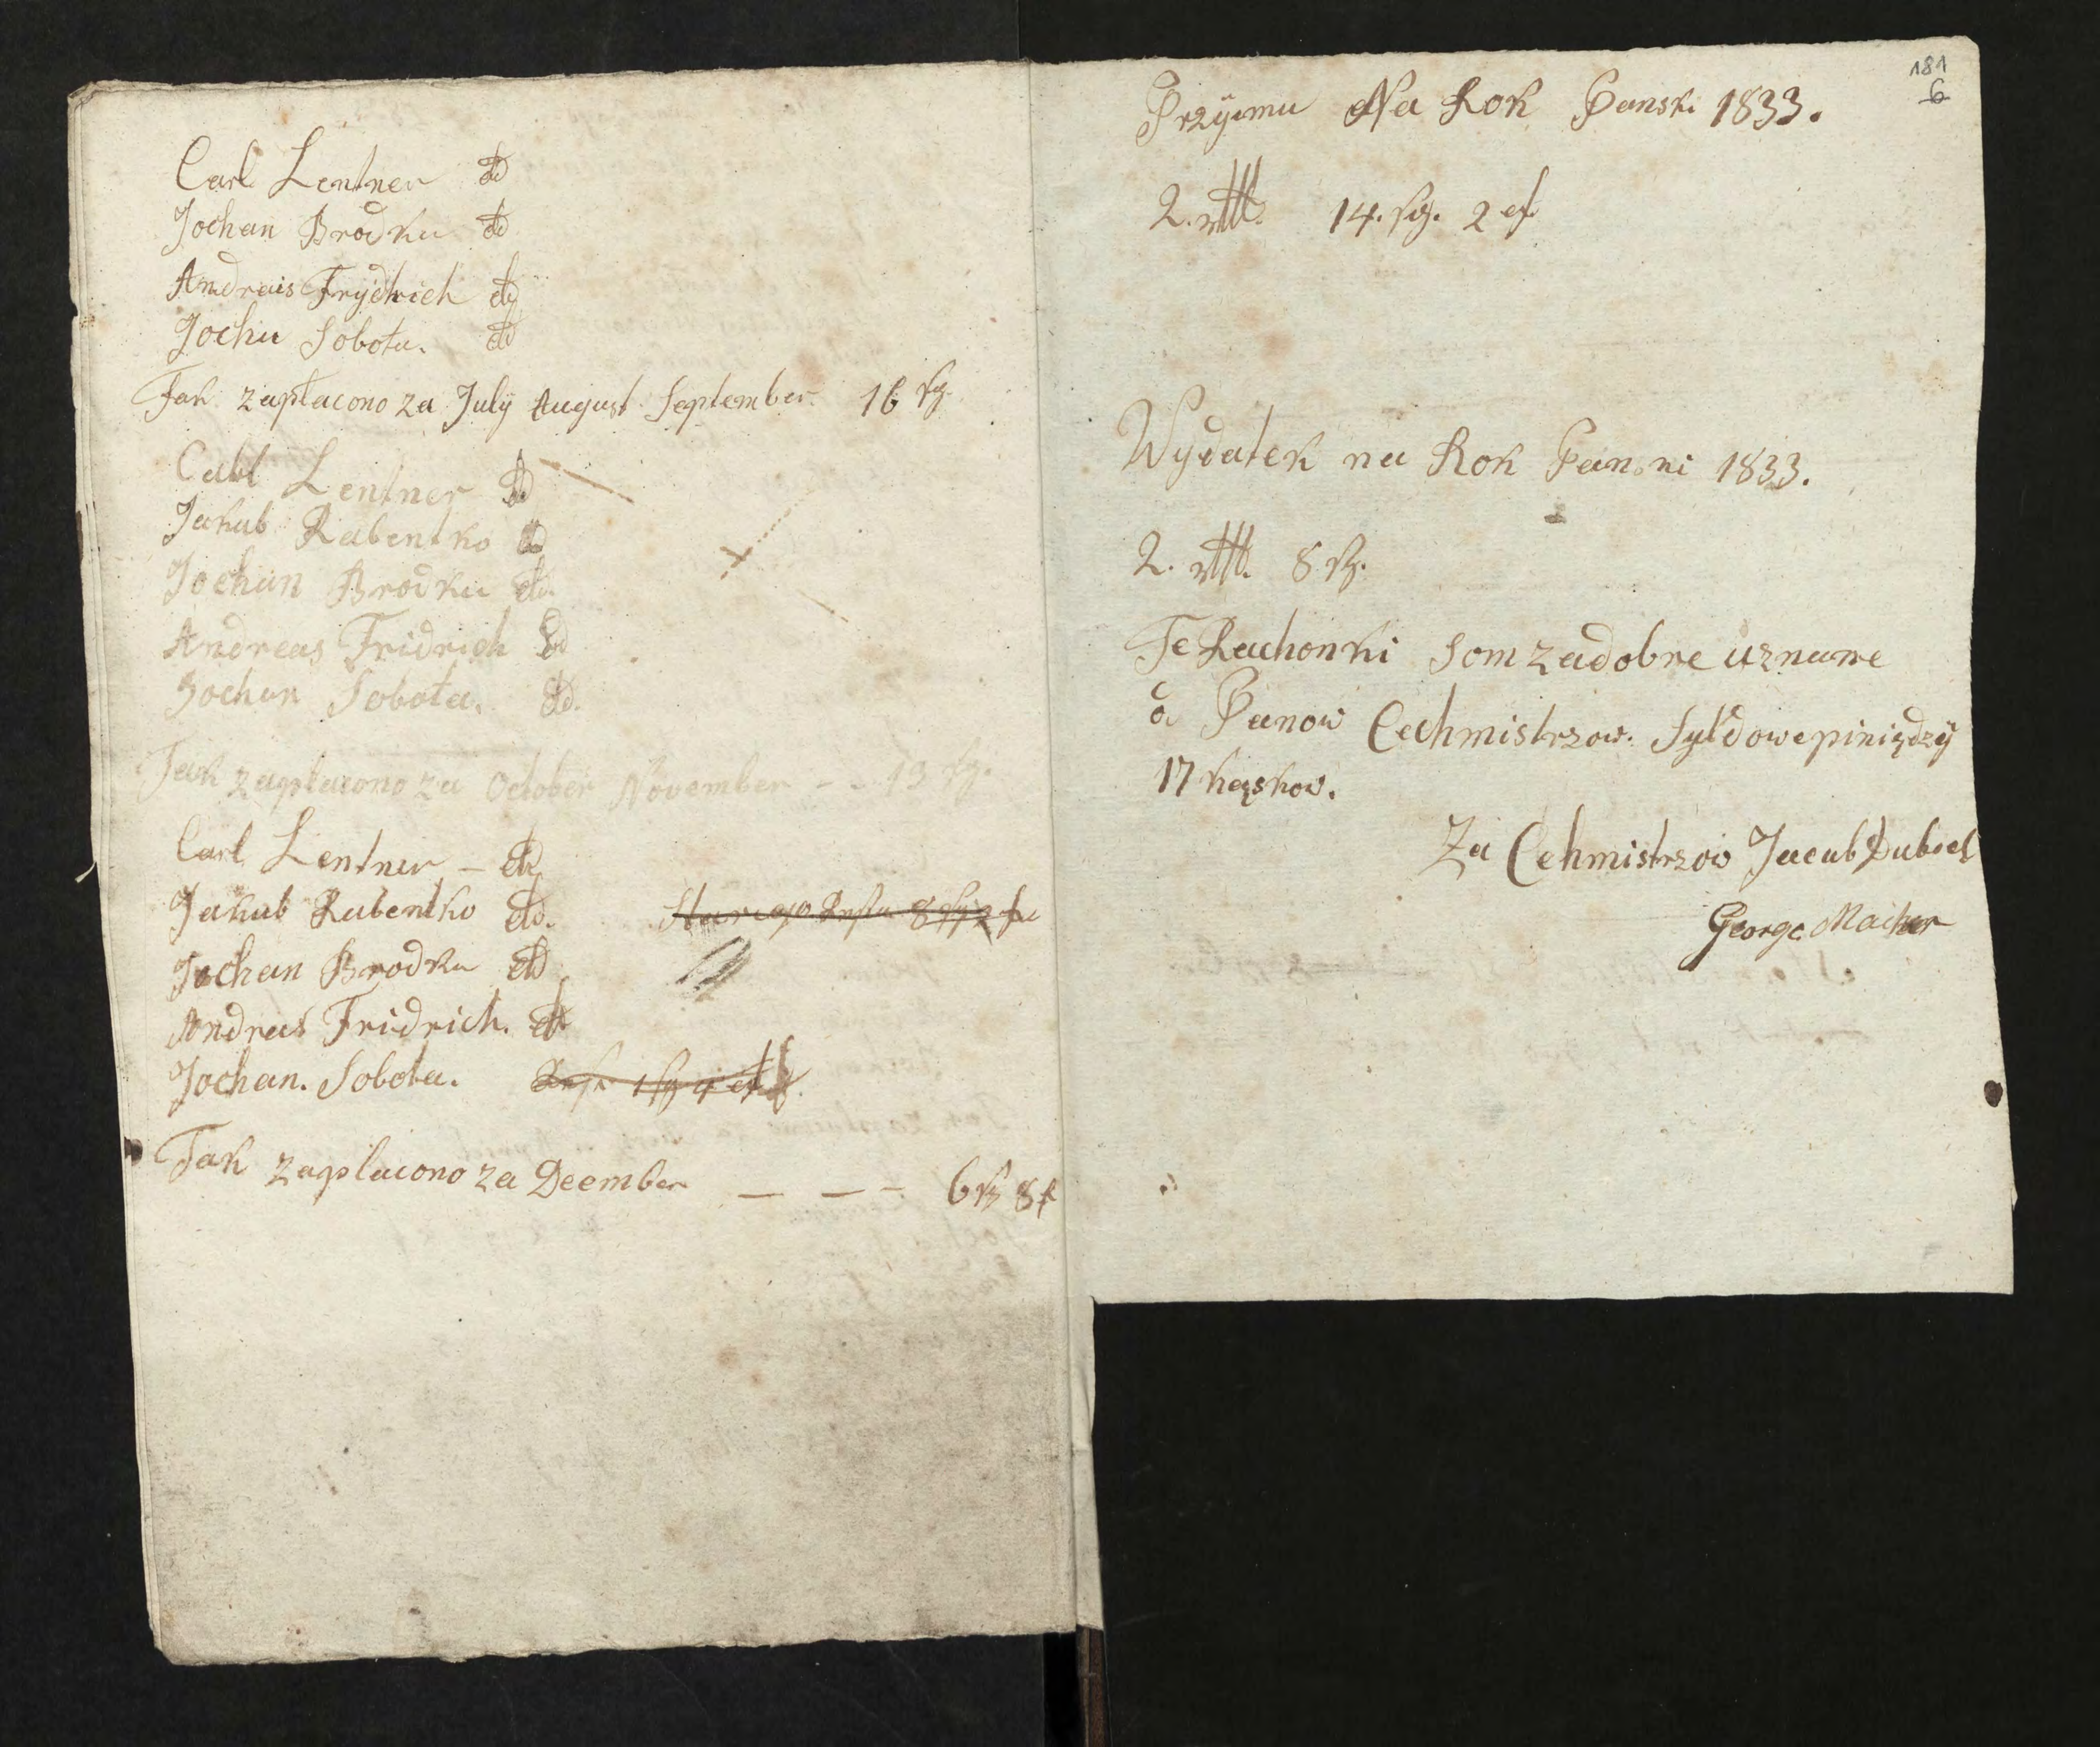 Carl Lentner dd
Jochan Brodka dd
Andreis Frydrich dd
Jochu Sobota. dd
Tak zapłacono za July August September. 16 sg.
Carl Lentner dd
Jakub Rabentko dd
Jochan Brodka dd.
Andreas Fridrich dd
Jochan Sobota. dd.
Tak zapłacono za October November - - 13 sg.
Carl Lentner - dd
Jakub Rabentko dd. Starego Resta 8 sg 2 f
Jochan Brodka dd
Andreas Fridrich. dd
Jochan. Sobota. Resta 1 sg 4
Tak zaplacono za Deember — — — 6 sg 8 f
181
6
Przyimu Na Rok Panski 1833.
2. rtl. 14. sg. 2 f
Wydatek na Rok Panski 1833.
2. rtl. 8 sg.
Te Rachonki som za dobre uznane
od Panow Cechmistrzow. Syldowe piniędzy
17 kąskow.
Za Cehmistrzow Jacub Dubiel
George Macher